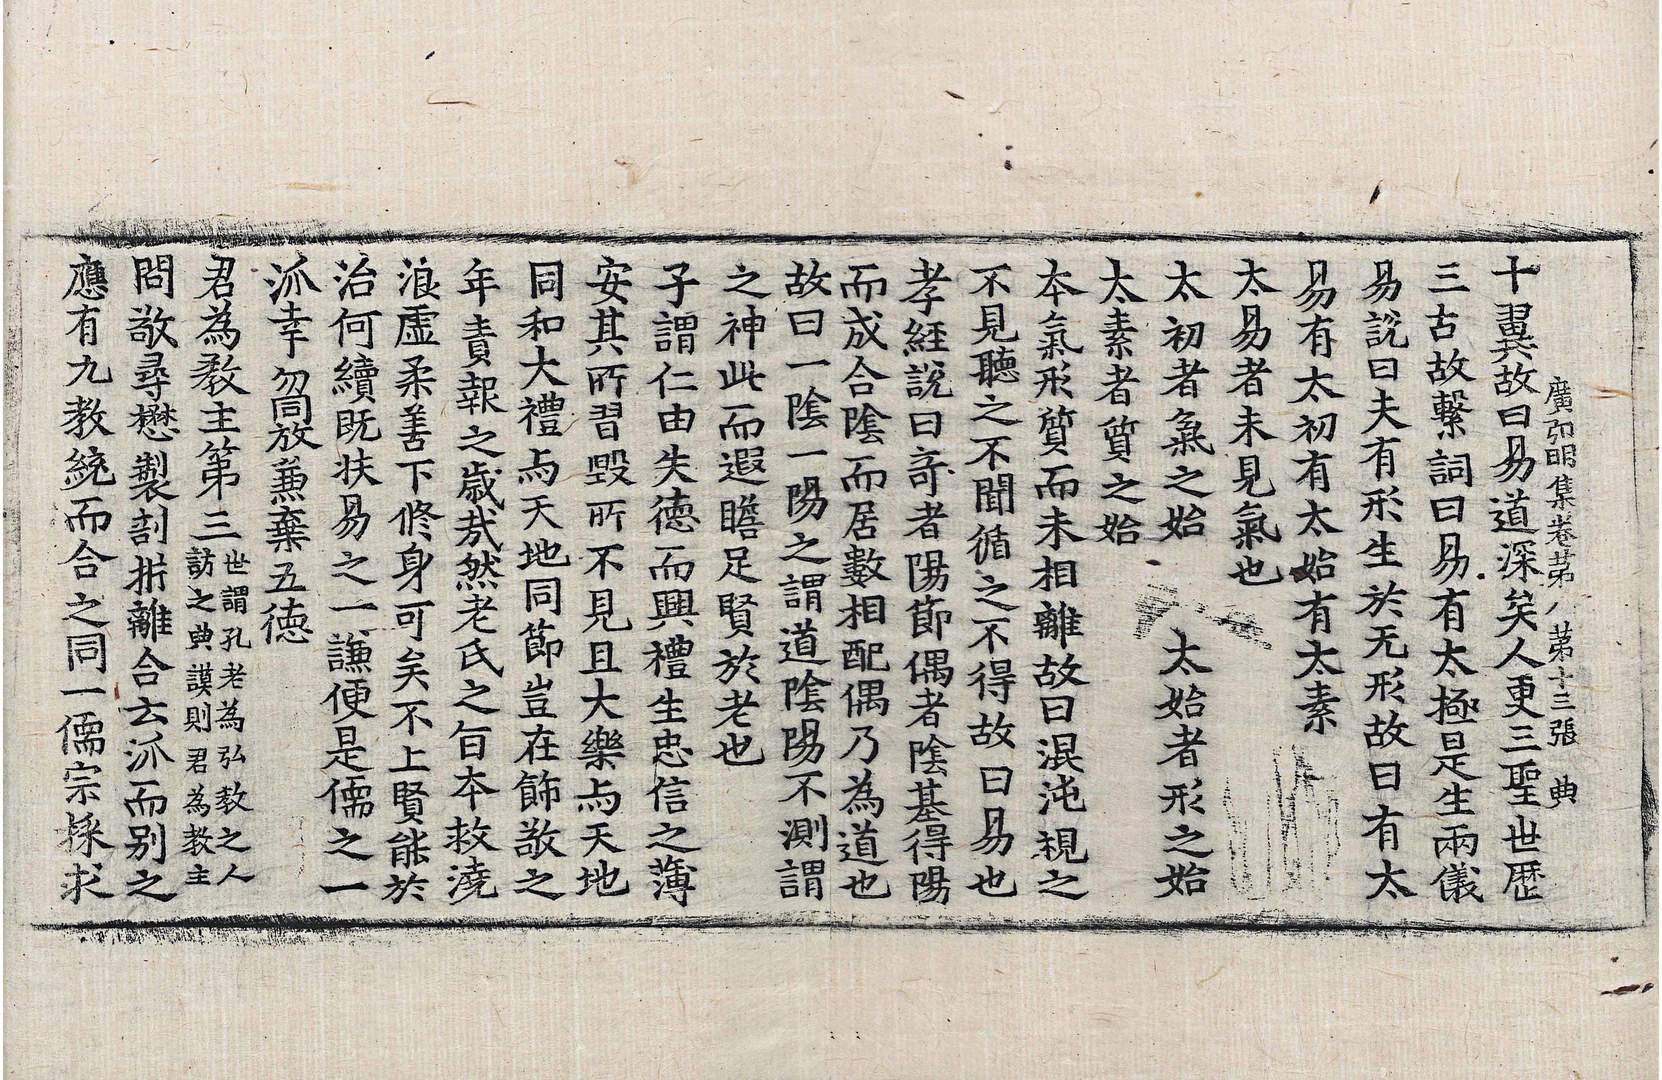 十翼故曰易道深矣人更三聖世歷
廣弘明集卷苐八 苐十三張 典
三古故繫詞曰易有太極是生兩儀
易說曰夫有形生於无形故曰有太
易有太初有太始有太素
太易者未見氣也
太初者氣之始 太始者形之始
太素者質之始
夲氣形質而未相離故曰混沌視之
不見聽之不聞循之不得故曰易也
孝經說曰竒者陽節偶者陰基得陽
而成合陰而居數相配偶乃為道也
故曰一陰一陽之謂道陰陽不測謂
之神此而遐瞻足賢於老也
子謂仁由失德而興禮生忠信之薄
安其所習毀所不見且大樂与天地
同和大禮与天地同節豈在飾敬之
年責報之歲㢤然老氏之旨夲救澆
浪虛柔善下脩身可矣不上賢能於
治何續旣扶易之一謙便是儒之一
派幸勿同放蕪棄五德
君為教主第三 世謂孔老為弘教之人
訪之典謨則君為教主
問敬尋懋製剖㭊離合云派而別之
應有九教統而合之同一儒宗採求